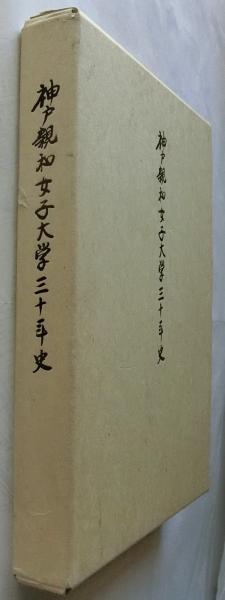 神戸親和女子大学三十年史
神戸親和女子大学三十年史